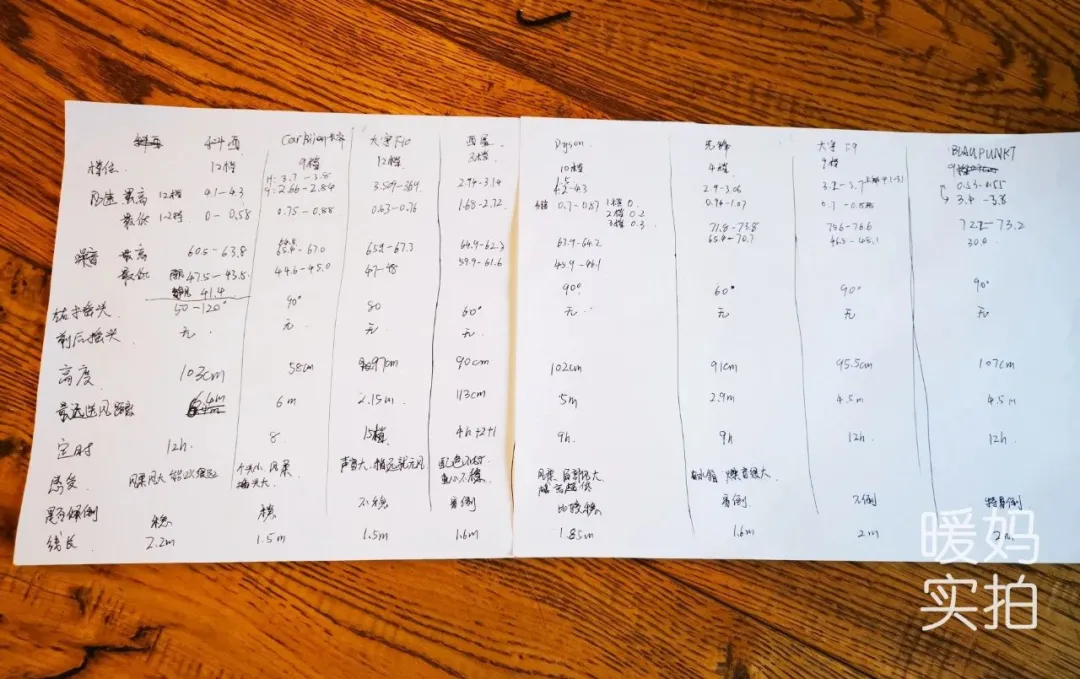 科西 Carbilon卡本 大宇F10 西屋 Dyson 先锋 大宇F9 BLAUPUNKT
档位 12档 9档 12档 3档 10档 4档 9档 9
H: 3.7-3.8 1.5
风速 最高 12档 4.1-4.3 2.66-2.84 2.94-3.14 4.2-4.3 2.9-3.06 0.53-0.55
最低 1-2档 0-0.58 0.75-0.88 0.63-0.76 1.68-2.72 0.7-0.87 1档 0. 0.94-1.07 3.4-3.8
2档 0.2
3档 0.3
噪音 最高 60.5-63.8 65.4-67.0 65.2-67.3 64.9-62.3 63.9-64.2 71.8-73.8 75.6-76.6 72.2-73.2
65.4-70.7 46.5-48.1 30.0
最低 47.5-43.8 44.6-45.0 47-48 59.9-61.6 45.9-46.1
41.4
左右摇头 50-120° 90° 80 60° 90° 60° 90° 90°
前后摇头 无 无 无 无 无 无 无 无
高度 103cm 58cm 97cm 90cm 102cm 91cm 95.5cm 107cm
最远送风距离 6.6m 6m 2.15m 113cm 5m 2.9m 4.5m 4.5m
定时 12h 8 15档 4h+2+1 9h 9h 12h 12h
感受 风柔风大 个头小,风柔 声音大,稍远就无风 风柔 有水箱 噪音很大
摇头大
是否倾倒 稳 稳 不稳 易倒 比较稳 易倒 不倒 特易倒
线长 2.2m 1.5m 1.5m 1.6m 1.85m 1.6m 2m 2m
暖妈
实拍